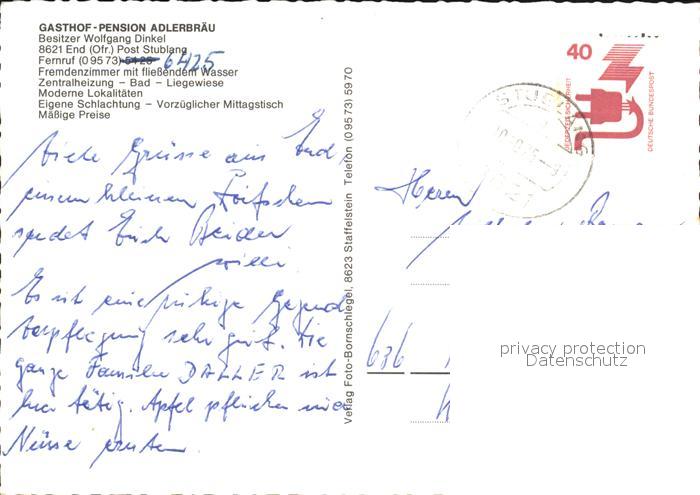 GASTHOF-PENSION ADLERBRÄU
Besitzer Wolfgang Dinkel
8621 End (Ofr.) Post Stublang
Fernruf (0 95 73) 5425 6425
Fremdenzimmer mit fließendem Wasser
Zentralheizung – Bad – Liegewiese
Moderne Lokalitäten
Eigene Schlachtung – Vorzüglicher Mittagstisch
Mäßige Preise
Viele Grüsse aus End,
einem kleinen
sendet Euch Beiden
Willi.
Es ist eine ruhige Gegend
Verpflegung sehr gut. Die
ganze Familie DALLER ist
hier tätig. Apfel pflücken und
Nüsse ernten
Verlag Foto-Bornschlegel, 8623 Staffelstein Telefon (0 95 73) 59 70
40
JEDERZEIT SICHERHEIT
DEUTSCHE BUNDESPOST
STUBLANG
Herrn
636
privacy protection
Datenschutz